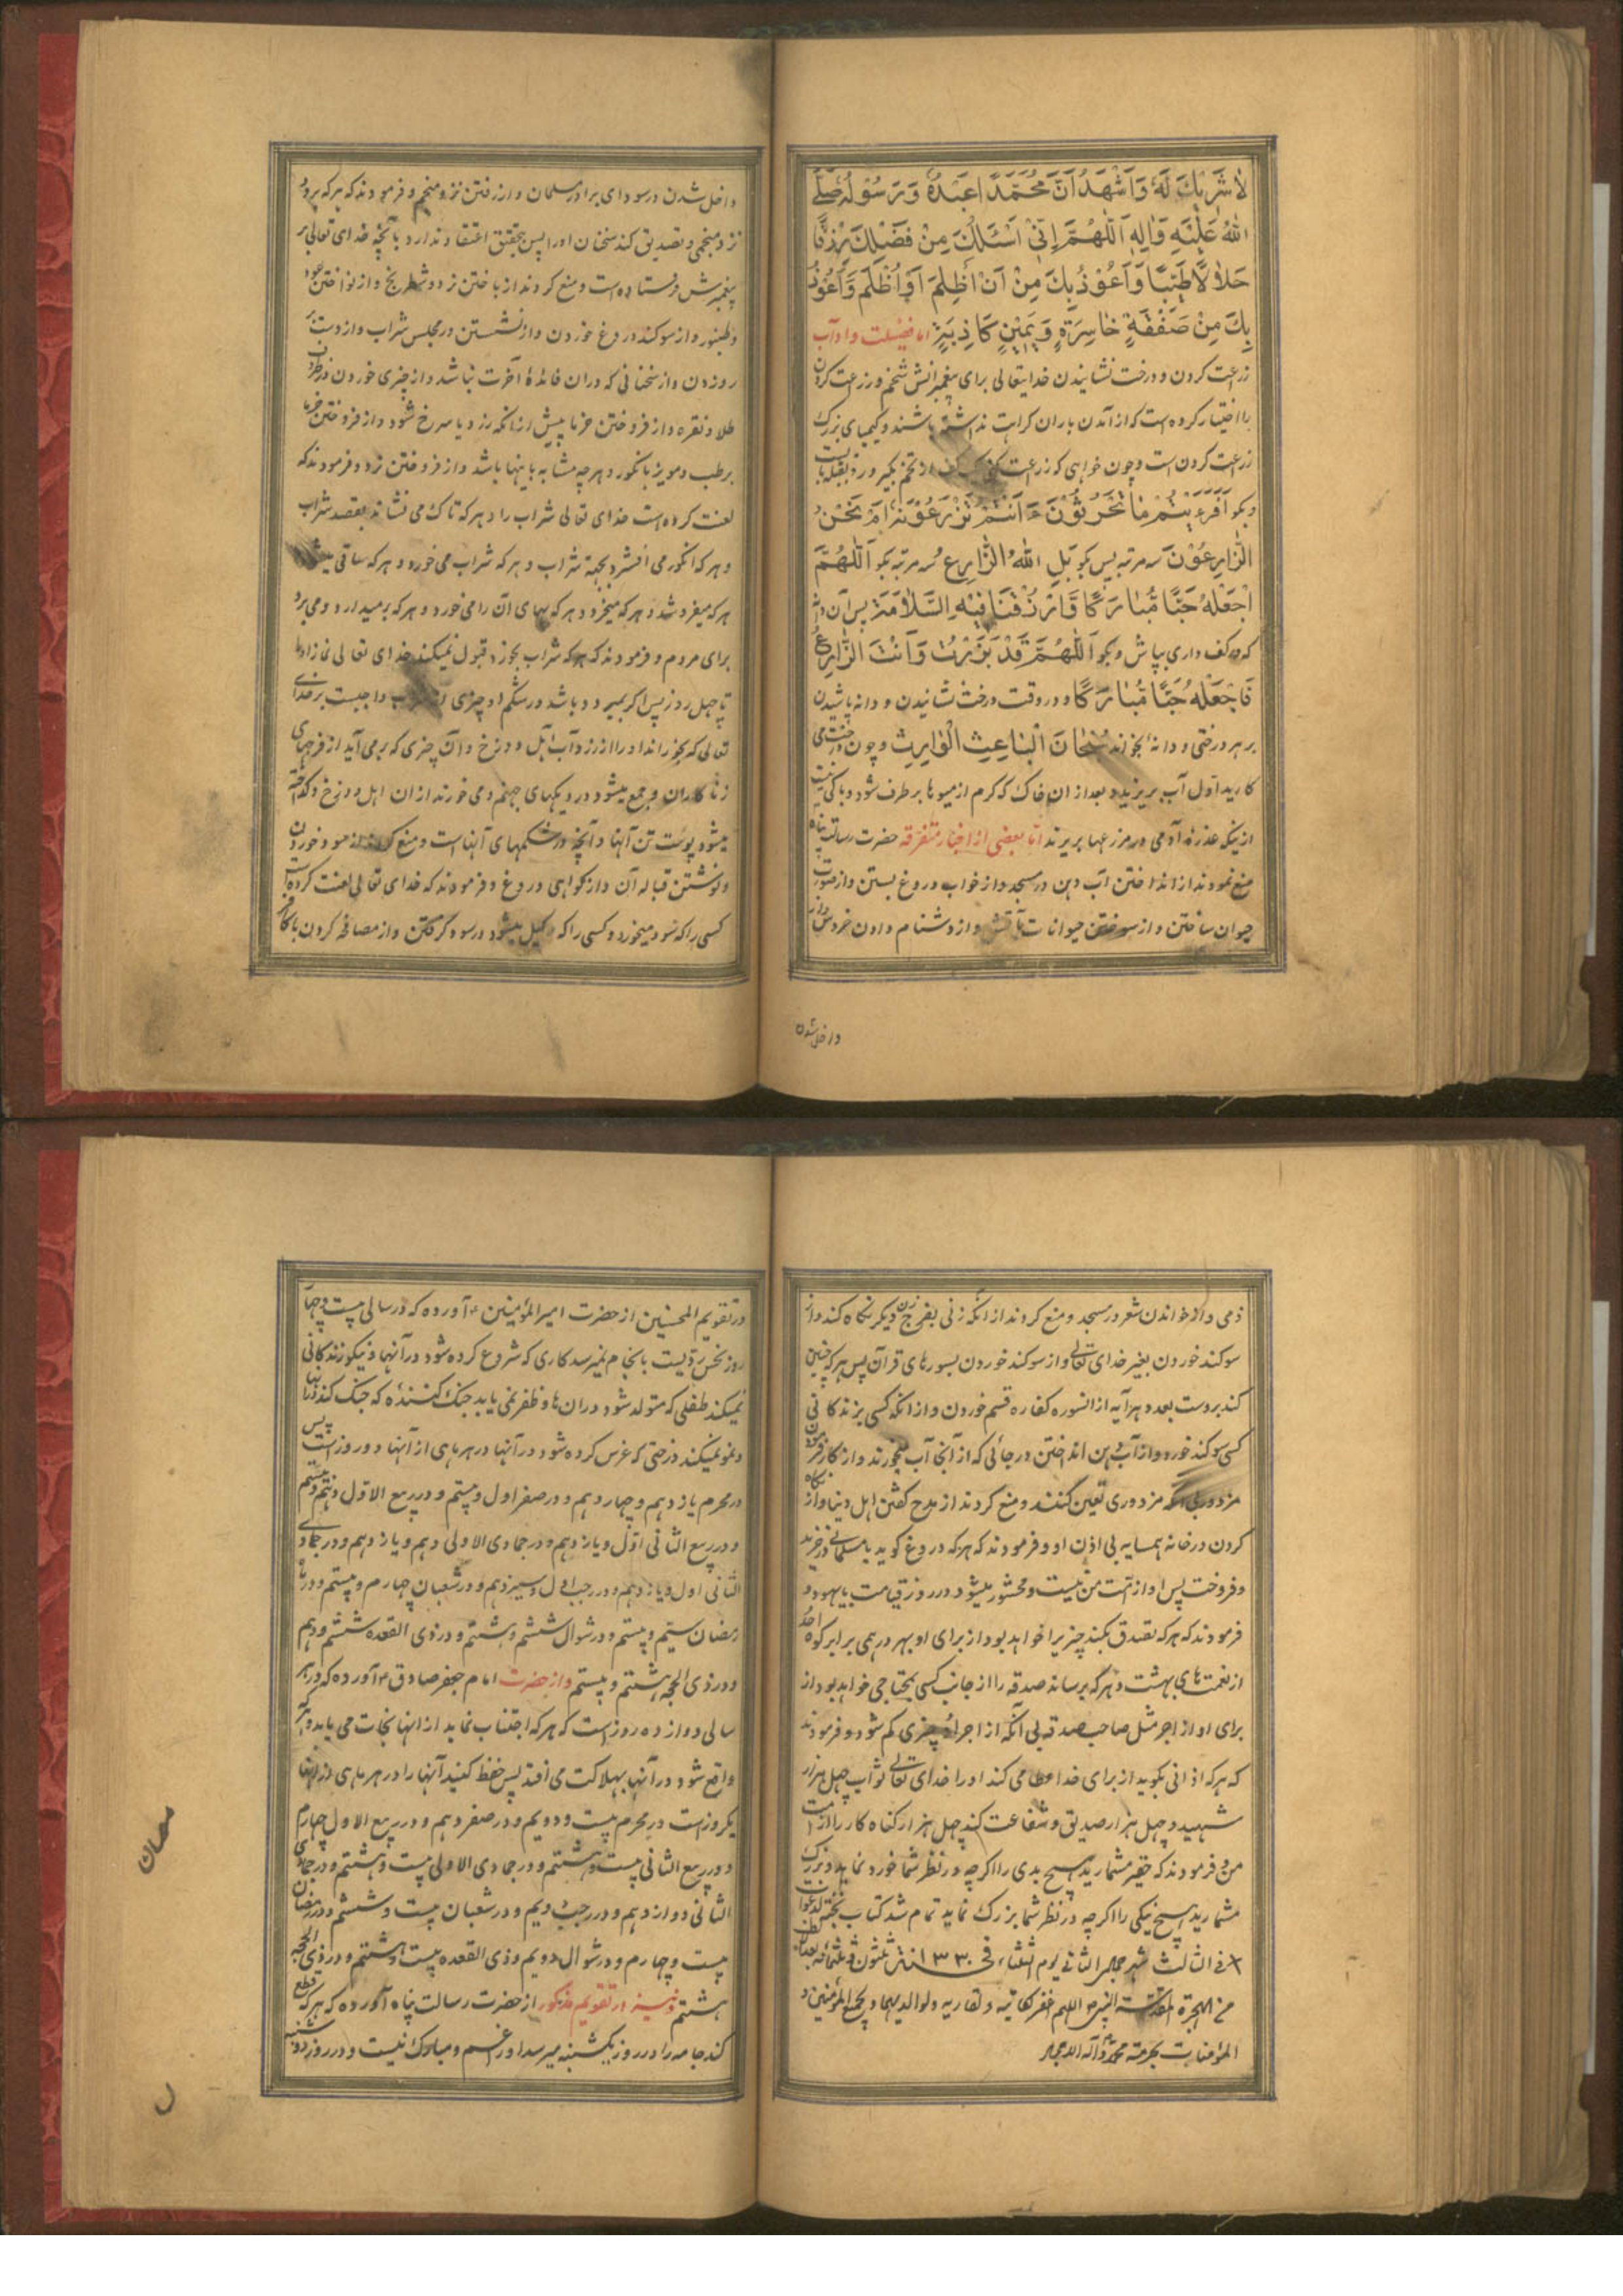 لا شَرِيكَ لَهُ وَاَشْهَدُ اَنَّ مُحَمَّدًا عَبْدُهُ وَرَسُولُهُ صَلَّى
اللهُ عَلَيْهِ وَآلِهِ اَللّٰهُمَّ اِنِّي اَسْئَلُكَ مِنْ فَضْلِكَ رِزْقًا
حَلاٰلاً طَيِّبًا وَّاَعُوْذُ بِكَ مِنْ اَنْ اَظْلِمَ اَوْ اُظْلَمَ وَاَعُوْذُ
بِكَ مِنْ صَفْقَةٍ خَاسِرَةٍ وَيَمِيْنٍ كَاذِبَةٍ اما فضیلت و اداب
زرعت کردن و درخت نشانیدن خدایتعالی برای پیغمبرانش شخم و زرعت کردن
را اختیار کرده است که از آمدن باران کراهت نداشته باشند و کیمیای بزرک
زرعت کردن است و چون خواهی که زرعت کنی یک کف از تخم بکیر و رو بقبله بایست
و بکو اَفَرَءَيْتُمْ مٰا تَحْرُثُوْنَ ءَ اَنْتُمْ تَزْرَعُوْنَهُ اَمْ نَحْنُ
الزّٰارِعُوْنَ سه مرتبه پس بکو بَلِ اللهُ الزّٰارِع سه مرتبه بکو اَللّٰهُمَّ
اجْعَلْهُ حَبًّا مُّبٰارَكًا وَّارْزُقْنَا فِيْهِ السَّلاٰمَةَ پس آن دانه
که در کف داری بپاش و بکو اَللّٰهُمَّ قَدْ بَذَرْتُ وَاَنْتَ الزّٰارِعُ
فَاجْعَلْهُ حَبًّا مُّبٰارَكًا و در وقت درخت نشانیدن و دانه پاشیدن
بر هر درختی و دانهٔ بخواند سُبْحَانَ الْبَاعِثِ الْوَارِثِ و چون درخت می
کارید اول آب بریزید و بعد از ان خاک که کرم از میوها بر طرف شود و باکی نیست
از اینکه عذرهٔ آدمی در مزرعها بریزند اما بعضی از اخبار متفرقه حضرت رسالت پناه
منع نمودند از انداختن آب دهن در مسجد و از خواب دروغ بستن و از صورت
حیوان ساختن و از سوختن حیوانات بآتش و از دشنام دادن خروس و از
داخل شده
داخل شدن در سودای برادر مسلمان و از رفتن نزد منجم و فرمودند که هر که برود
نزد منجمی و تصدیق کند سخنان او را پس بتحقیق اعتقاد ندارد بآنچه خدای تعالی بر
پیغمبرش فرستاده است و منع کردند از باختن نرد و شطرنج و از نواختن عود
و طنبور و از سوکند دروغ خوردن و از نشستن در مجلس شراب و از دست بر
رو زدن و از سخنانی که دران فائدهٔ آخرت نباشد و از چیزی خوردن در ظرف
طلا و نقره و از فروختن خرما پیش از انکه زرد یا سرخ شود و از فروختن خرما
برطب و مویز بانکور و هر چه مشابه باینها باشد و از فروختن نرد و فرمودند که
لعنت کرده است خدای تعالی شراب را و هر که تاک می نشاند بقصد شراب
و هر که انکور می افشرد بجهة شراب و هر که شراب می خورد و هر که ساقی میشود
هر که میفروشد و هر که میخرد و هر که بهای آن را می خورد و هر که بر میدارد و می برد
برای مردم و فرمودند که هر که شراب بخورد قبول نمیکند خدای تعالی نماز او را
تا چهل روز پس اگر بمیرد و باشد در شکم او چیزی از شراب واجبست بر خدای
تعالی که بخوراند او را از زرداب اهل دوزخ و آن چیزی که بر می آید از فرجهای
زنا کاران و جمع میشود در دیکهای جهنم و می خورند از ان اهل دوزخ و کداخته
میشود پوست تن آنها و آنچه در شکمهای آنهاست و منع کردند از سود خوردن
و نوشتن قباله آن و از کواهی دروغ و فرمودند که خدای تعالی لعنت کرده است
کسی را که سود میخورد و کسی را که وکیل میشود در سود کرفتن و از مصافحه کردن با کافر
ذمی و از خواندن شعر در مسجد و منع کردند از انکه زنی بفرج زن دیکر نکاه کند و از
سوکند خوردن بغیر خدای تعالی و از سوکند خوردن بسورهای قرآن پس هر که چنین
کند بروست بعدد هر آیه از انسوره کفاره قسم خوردن و از انکه کسی بزندکانی
کسی سوکند خورد و از آب دهن انداختن در جائی که از آنجا آب میخورند و از کار فرمودن
مزدور بی آنکه مزدوری تعین کنند و منع کردند از مدح کفتن اهل دنیا و از نکاه
کردن در خانه همسایه بی اذن او و فرمودند که هر که دروغ کوید با مسلمانی در خرید
و فروخت پس او از امت من نیست و محشور میشود در روز قیامت با یهود و
فرمودند که هر که تصدق بکند چیزیرا خواهد بود از برای او بهر درهمی برابر کوه احد
از نعمت های بهشت و هر که برساند صدقه را از جانب کسی بمحتاجی خواهد بود از
برای او از اجر مثل صاحب صدقه بی آنکه از اجر او چیزی کم شود و فرمودند
که هر که اذانی بکوید از برای خدا عطا می کند او را خدای تعالی ثواب چهل هزار
شهید و چهل هزار صدیق و شفاعت کند چهل هزار کناه کار را از امت
من و فرمودند که حقیر مشمارید هیچ بدی را اگر چه در نظر شما خورد نماید و بزرک
مشمارید هیچ نیکی را اگر چه در نظر شما بزرک نماید تمام شد کتاب
فی الثالث شهر جمادی الثانی یوم الثلثاء فی ۱۳۳۰ سنة ثلثون و ثلثمائة بعد الف
من الهجرة المقدسة النبویه اللهم اغفر لکاتبه و لقاریه و لوالدیهما و لجمیع المؤمنین و
المؤمنات بحرمة محمد و آله الامجاد
در تقویم المحسنین از حضرت امیر المؤمنین ع آورده که در سالی بیست و چهار
روز نحس رویست بانجام نمیرسد کاری که شروع کرده شود در آنها و نیکو زندکانی
نمیکند طفلی که متولد شود دران ها و ظفر نمی یابد جنک کنندهٔ که جنک کند در انها
و نمو نمیکند درختی که غرس کرده شود در آنها در هر ماهی از آنها دو روز است پس
در محرم یازدهم و چهاردهم و در صفر اول و بیستم و در ربیع الاول دهم و بیستم
و در ربیع الثانی اول و یازدهم و در جمادی الاولی دهم و یازدهم و در جمادی
الثانی اول و یازدهم و در رجب اول و سیزدهم و در شعبان چهارم و بیستم و در ماه
رمضان سیم و بیستم و در شوال ششم و هشتم و در ذی القعده ششم و دهم
و در ذی الحجه هشتم و بیستم و از حضرت امام جعفر صادق ع آورده که در هر
سالی دوازده روز است که هر که اجتناب نماید از انها نجات می یابد و هر که
واقع شود در آنها بهلاکت می افتد پس حفظ کنید آنها را در هر ماهی از انها
یکروز است در محرم بیست و دویم و در صفر دهم و در ربیع الاول چهارم
و در ربیع الثانی بیست و هشتم و در جمادی الاولی بیست و هشتم و در جمادی
الثانی دوازدهم و در رجب دویم و در شعبان بیست و ششم و در رمضان
بیست و چهارم و در شوال دویم و ذی القعده بیست و هشتم و در ذی الحجه
هشتم و نیز در تقویم مذکور از حضرت رسالت پناه آورده که هر که قطع
کند جامه را در روز یکشنبه میرسد او را غم و مبارک نیست و در روز دوشنبه